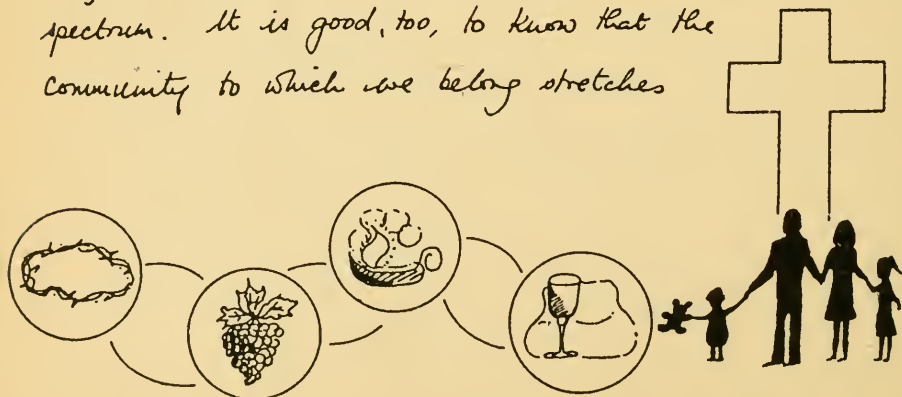 spectrum. It is good, too, to know that the
community to which we belong stretches